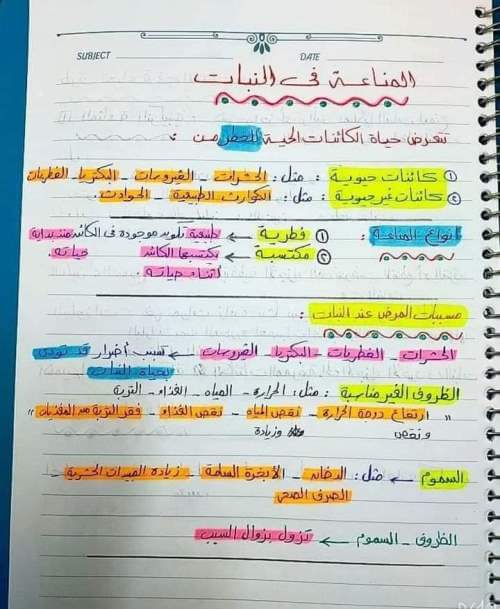 SUBJECT DATE
المناعة فى النبات
تتعرض حياة الكائنات الحية للخطر من :
① كائنات حيوية : مثل : الحشرات - الفيروسات - البكتريا - الفطريات
② كائنات غير حيوية : مثل : الكوارث الطبيعية - الحوادث.
أنواع المناعة : ① فطرية ← طبيعية تكون موجودة فى الكائن منذ بداية حياته.
② مكتسبة ← يكتسبها الكائن أثناء حياته.
مسببات المرض عند النبات :
الحشرات - الفطريات - البكتريا - الفيروسات ← تسبب أضرار قد تودى بحياة النبات
الظروف الغير مناسبة : مثل : الحرارة - المياه - الغذاء - التربة
" ارتفاع درجة الحرارة - نقص المياه - نقص الغذاء - فقر التربة من المغذيات "
ونقص وزيادة
السموم ← مثل : الدخان - الأبخرة السامة - زيادة المبيدات الحشرية -
الصرف الصحى
الظروف - السموم ← تزول بزوال السبب